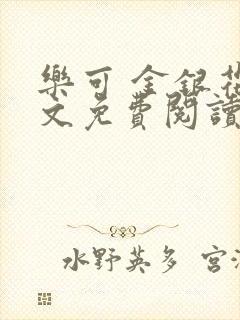 樂可 金銀花
文免費閱讀
水野英多 宮